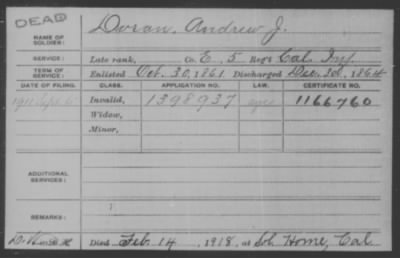 DEAD
NAME OF SOLDIER: Doran, Andrew J.
SERVICE: Late rank, Co. E, 5 Reg't Cal. Inf.
TERM OF SERVICE: Enlisted Oct. 30, 1861 Discharged Dec. 1864
DATE OF FILING. CLASS. APPLICATION NO. LAW. CERTIFICATE NO.
1911 Invalid, 1398937 1166760
Widow,
Minor,
ADDITIONAL SERVICES:
REMARKS:
Died Feb. 14, 1918, at Sol. Home, Cal.